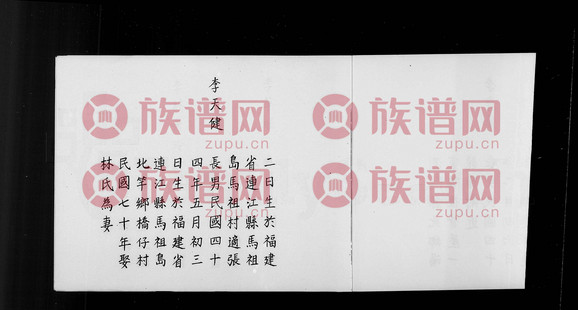 二日生於福建
省連江縣馬祖
島馬祖村適張
李天健
長男民國四十
四年五月初三
日生於福建省
連江縣馬祖島
北竿鄉橋仔村
民國七十年娶
林氏為妻
族谱网
zupu.cn
族谱网
zupu.cn
族谱网
zupu.cn
族谱网
zupu.cn